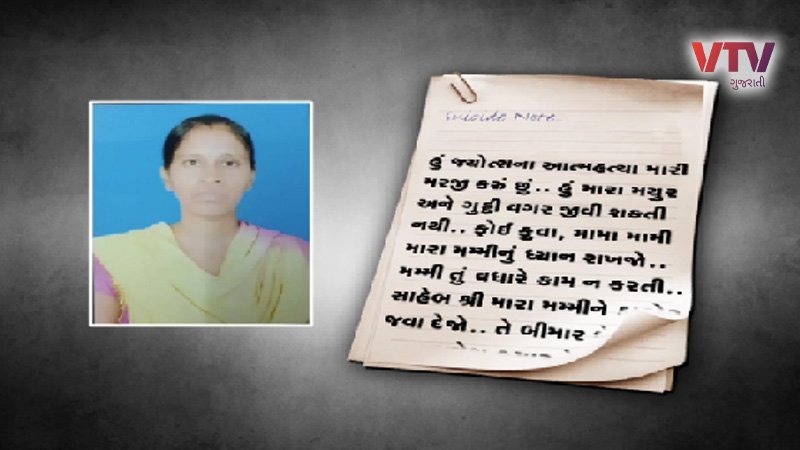 VTV
ગુજરાતી
Suicide Note
હું જ્યોત્સના આત્મહત્યા મારી
મરજી કરું છું.. હું મારા મયુર
અને ગુડ્ડી વગર જીવી શકતી
નથી.. ફોઈ ફુવા, મામા મામી
મારા મમ્મીનું ધ્યાન રાખજો..
મમ્મી તું વધારે કામ ન કરતી..
સાહેબ શ્રી મારા મમ્મીને
જવા દેજો.. તે બીમાર